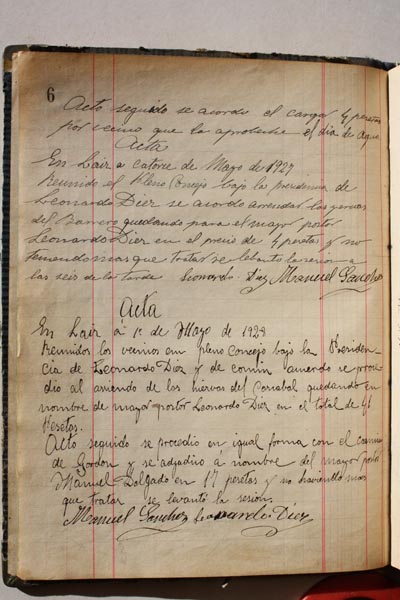 6
Acto seguido se acordo el cargar 4 pesetas
por vecino que la aproveche el dia de Agua
Acta
En Lair a catorce de Mayo de 1927
Reunido el Pleno Concejo bajo la presidencia de
Leonardo Diez se acordo arrendar las yervas
del Barrero quedando para el mayor portor
Leonardo Diez en el precio de 4 pesetas y no
teniendo mas que tratar se lebanto la sesion a
las seis de la tarde Leonardo Diez Manuel Sanchez
Acta
En Lair á 1º de Mayo de 1928
Reunidos los vecinos em pleno Concejo bajo la Presiden-
cia de Leonardo Diez y de comun acuerdo se proce
dio al arriendo de las hiervas del Corrabal quedando en
nombre de mayor portor Leonardo Diez en el total de 41
Pesetas.
Acto seguido se procedio en igual forma con el
de Gordon y se adjudico á nombre del mayor portor
Manuel Dolgado en 17 pesetas y no haviendo mas
que tratar se levantó la sesion.
Manuel Sanchez Leonardo Diez